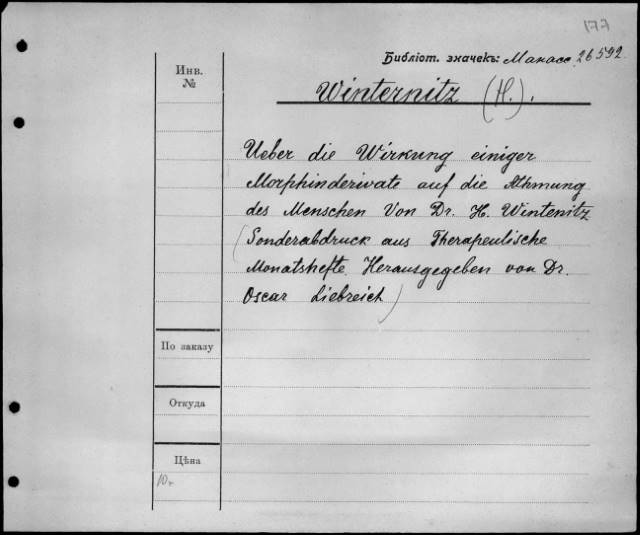 177
Библіот. значекъ: Манасс. 26592.
Инв.
№
Winternitz (H.).
Ueber die Wirkung einiger
Morphinderivate auf die Athmung
des Menschen Von Dr. H. Wintenitz
(Sonderabdruck aus Therapeutische
Monatshefte. Herausgegeben von Dr.
Oscar Liebreich)
По заказу
Откуда
Цѣна
10